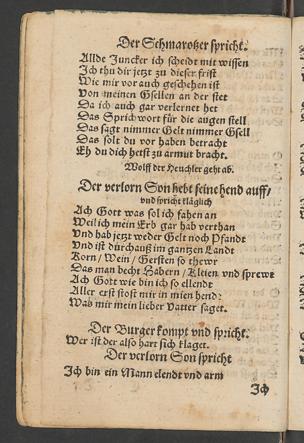 Der Schmarotzer spricht.
Allde Juncker ich scheidt mit wissen
Ich thu dir jetzt zu dieser frist
Wie mir vor auch geschehen ist
Von meinen Gsellen an der stet
Da ich auch gar verlernet het
Das Sprichwort für die augen stell
Das sagt nimmer Gelt nimmer Gsell
Das solt du vor haben betracht
Eh du dich hetst zu armut bracht.
Wolff der Heuchler geht ab.
Der verlorn Son hebt seine hend auff/
vnd spricht kläglich
Ach Gott was sol ich fahen an
Weil ich mein Erb gar hab verthan
Vnd hab jetzt weder Gelt noch Pfandt
Vnd ist durchauß im gantzen Landt
Korn/ Wein/ Gersten so thewr
Das man becht Habern/ Kleien vnd sprewr
Ach Gott wie bin ich so ellendt
Aller erst stost mir in mien hend:
Was mir mein lieber Vatter saget.
Der Burger kompt vnd spricht.
Wer ist der also hart sich klaget.
Der verlorn Son spricht
Ich bin ein Mann elendt vnd arm
Ich